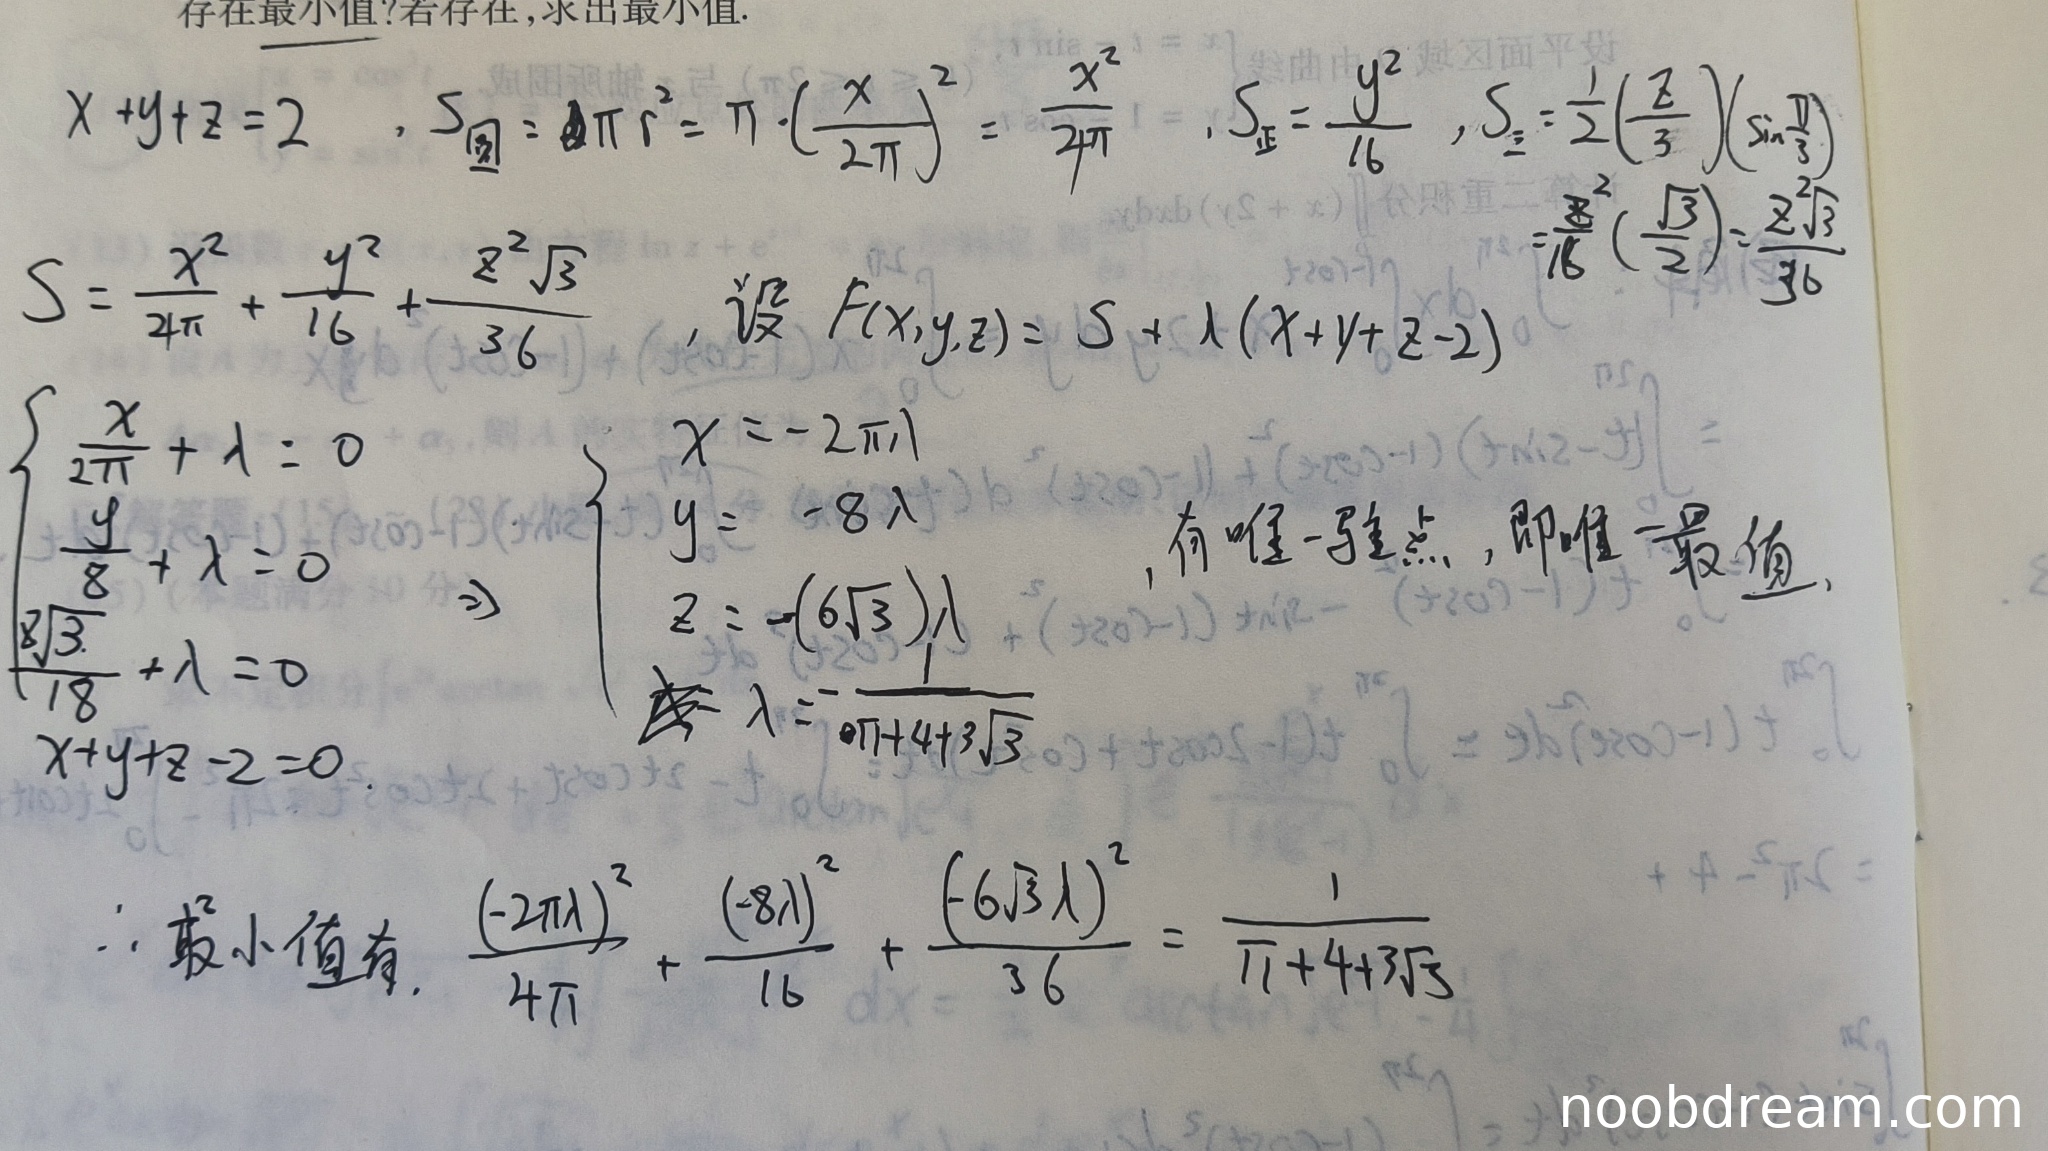 存在最小值?若存在,求出最小值.
x+y+z=2 , S圆 = πr² = π·(x/2π)² = x²/4π , S正 = y²/16 , S三 = 1/2(z/3)(sin π/3)
= z²/18(√3/2) = z²√3/36
S = x²/4π + y²/16 + z²√3/36 , 设 F(x,y,z) = S + λ(x+y+z-2)
{ x/2π + λ = 0
y/8 + λ = 0
z√3/18 + λ = 0
x+y+z-2=0.
⇒ { x = -2πλ
y = -8λ
z = -(6√3)λ
λ = -1/(π+4+3√3)
, 有唯一驻点, 即唯一最值,
∴ 最小值有. (-2πλ)²/4π + (-8λ)²/16 + (-6√3λ)²/36 = 1/(π+4+3√3)
noobdream.com